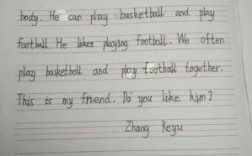 body. He can play basketball and play
football. He likes playing football. We often
play basketball and play football together.
This is my friend. Do you like him?
Zhang Keyu